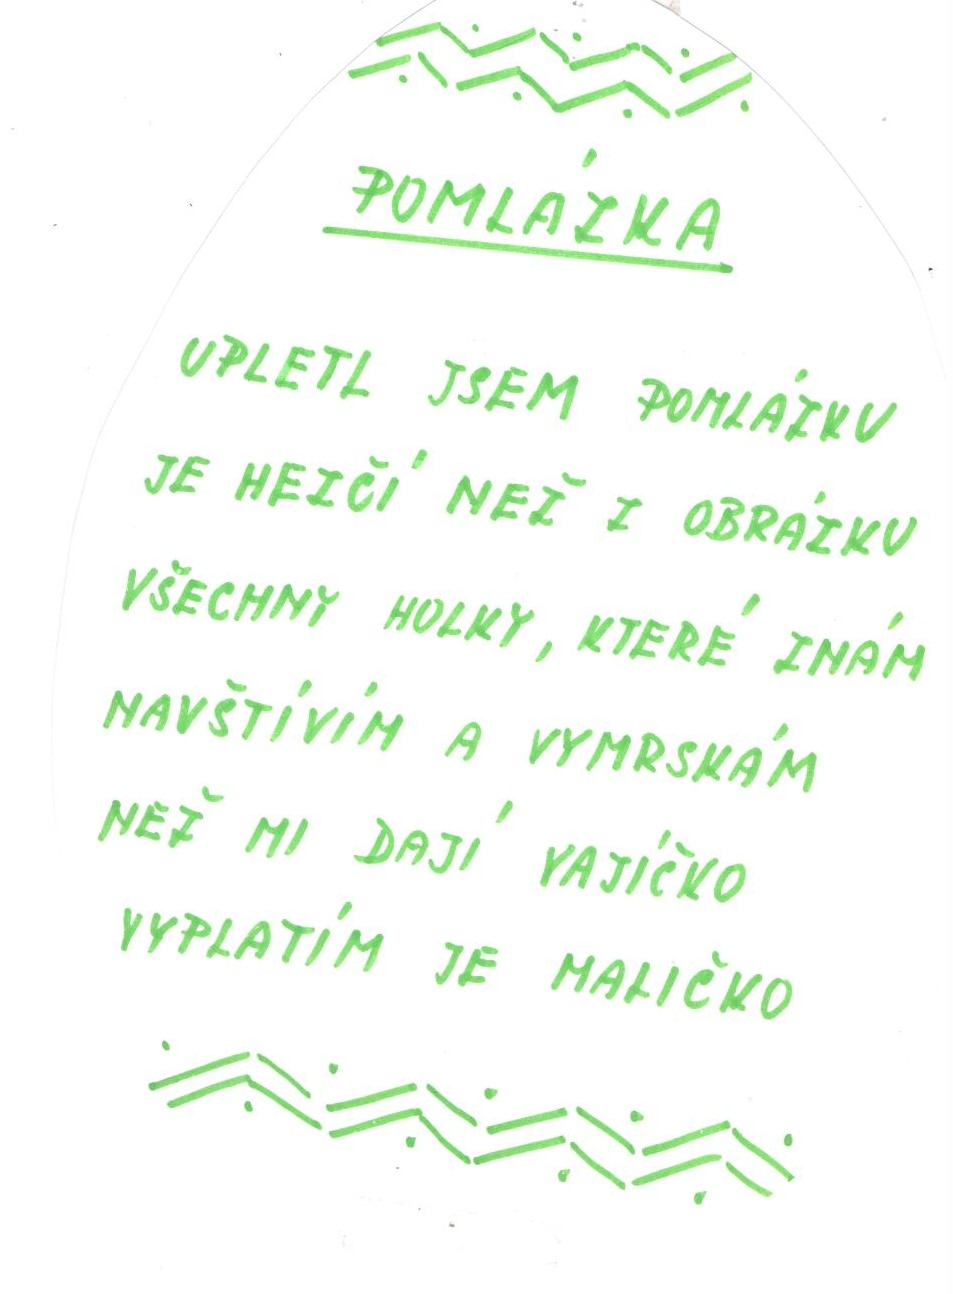 POMLÁZKA
UPLETL JSEM POMLÁZKU
JE HEZČÍ NEŽ Z OBRÁZKU
VŠECHNY HOLKY, KTERÉ ZNÁM
NAVŠTÍVÍM A VYMRSKÁM
NEŽ MI DAJÍ VAJÍČKO
VYPLATÍM JE MALIČKO